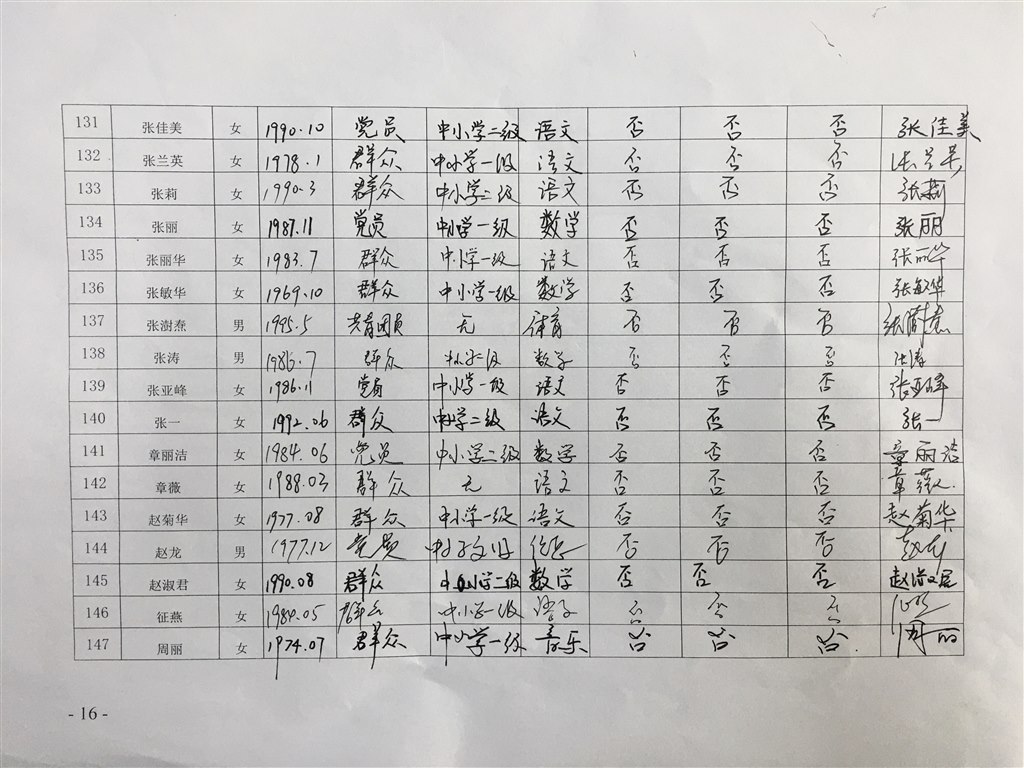 131 张佳美 女 1990.10 党员 中小学二级 语文 否 否 否 张佳美
132 张兰英 女 1978.1 群众 中小学一级 语文 否 否 否 张兰英
133 张莉 女 1990.3 群众 中小学二级 语文 否 否 否 张莉
134 张丽 女 1987.11 党员 中小学一级 数学 否 否 否 张丽
135 张丽华 女 1983.7 群众 中小学一级 语文 否 否 否 张丽华
136 张敏华 女 1969.10 群众 中小学一级 数学 否 否 否 张敏华
137 张澍焘 男 1995.5 共青团员 无 体育 否 否 否
138 张涛 男 1986.7 群众 数学 否 否 否 张涛
139 张亚峰 女 1986.11 党员 中小学一级 语文 否 否 否 张亚峰
140 张一 女 1992.06 群众 中小学二级 语文 否 否 否 张一
141 章丽洁 女 1984.06 党员 中小学二级 数学 否 否 否 章丽洁
142 章薇 女 1988.03 群众 无 语文 否 否 否 章薇
143 赵菊华 女 1977.08 群众 中小学一级 语文 否 否 否 赵菊华
144 赵龙 男 1977.12 党员 否 否 否 赵龙
145 赵淑君 女 1990.08 群众 中小学二级 数学 否 否 否 赵淑君
146 征燕 女 1984.05 群众 中小学一级 否 否 否
147 周丽 女 1974.07 群众 中小学一级 音乐 否 否 否 周丽
- 16 -